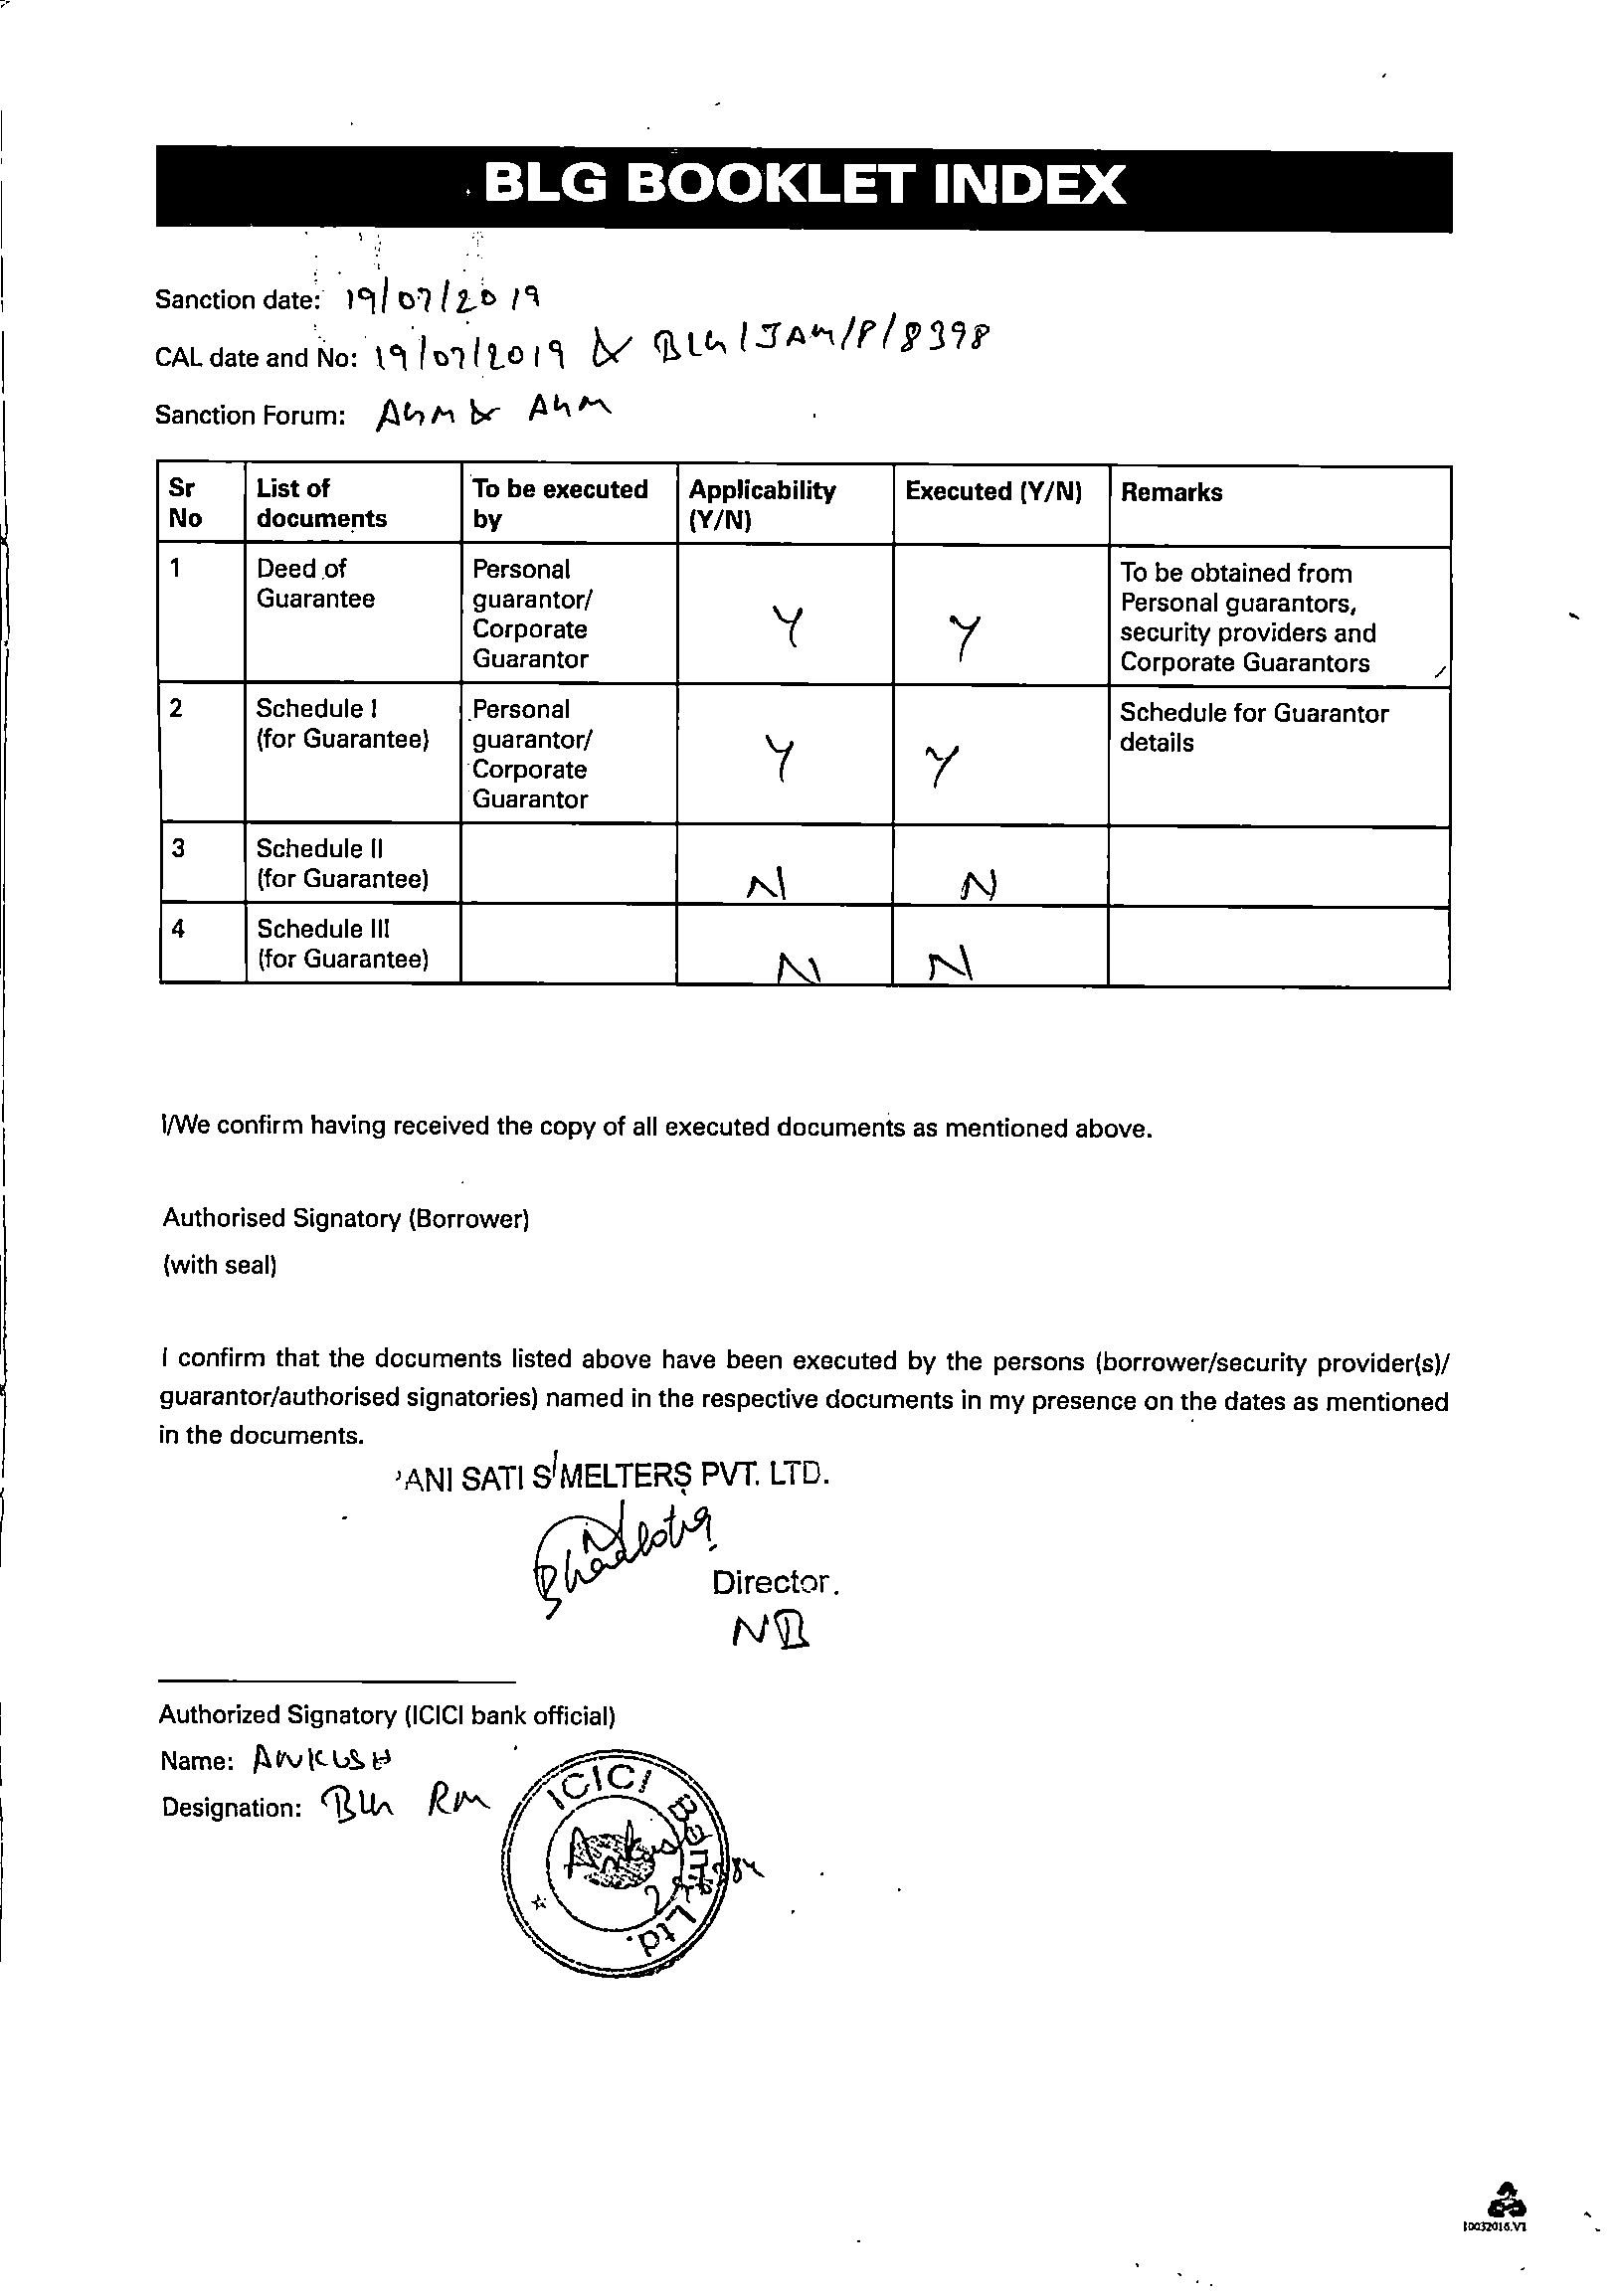 BLG BOOKLET INDEX
Sanction date: 19/07/2019
CAL date and No: 19/07/2019 & BLG/JAM/P/8398
Sanction Forum: AGM & AGM
Sr No List of documents To be executed by Applicability (Y/N) Executed (Y/N) Remarks
1 Deed of Guarantee Personal guarantor/ Corporate Guarantor Y Y To be obtained from Personal guarantors, security providers and Corporate Guarantors
2 Schedule I (for Guarantee) Personal guarantor/ Corporate Guarantor Y Y Schedule for Guarantor details
3 Schedule II (for Guarantee) N N
4 Schedule III (for Guarantee) N N
I/We confirm having received the copy of all executed documents as mentioned above.
Authorised Signatory (Borrower)
(with seal)
I confirm that the documents listed above have been executed by the persons (borrower/security provider(s)/
guarantor/authorised signatories) named in the respective documents in my presence on the dates as mentioned
in the documents.
ANI SATI SMELTERS PVT. LTD.
Director.
NB
Authorized Signatory (ICICI bank official)
Name: ANKUSH
Designation: BLG RM
ICICI Bank Ltd.
10032016.V1